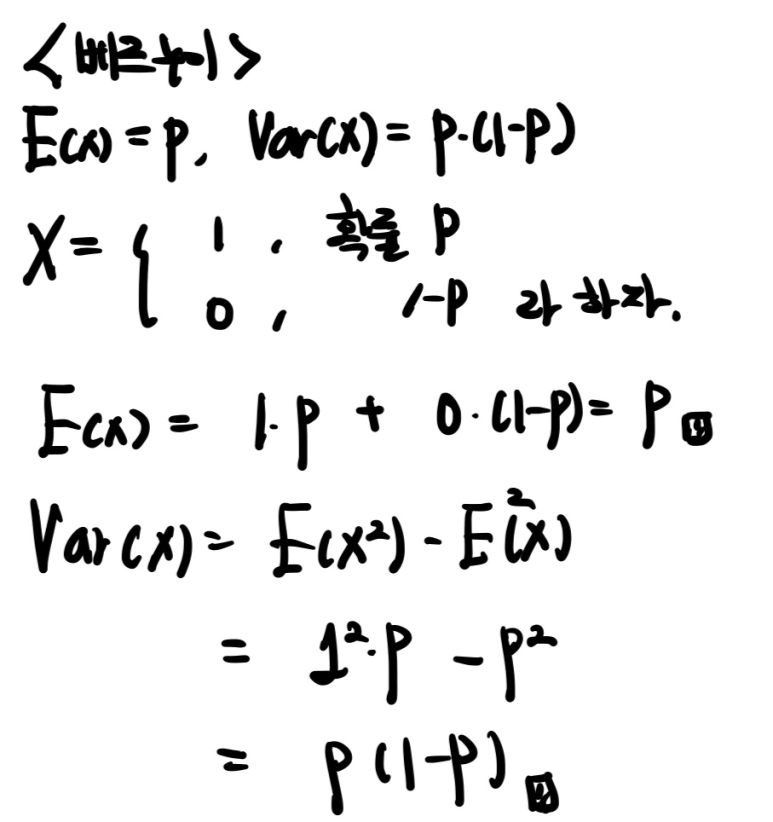 <베르누이>
E(x) = p, Var(X) = p·(1-p)
X = { 1 , 확률 p
0 , 1-p 라 하자.
E(x) = 1·p + 0·(1-p) = p
Var(X) = E(X²) - E²(X)
= 1²·p - p²
= p(1-p)